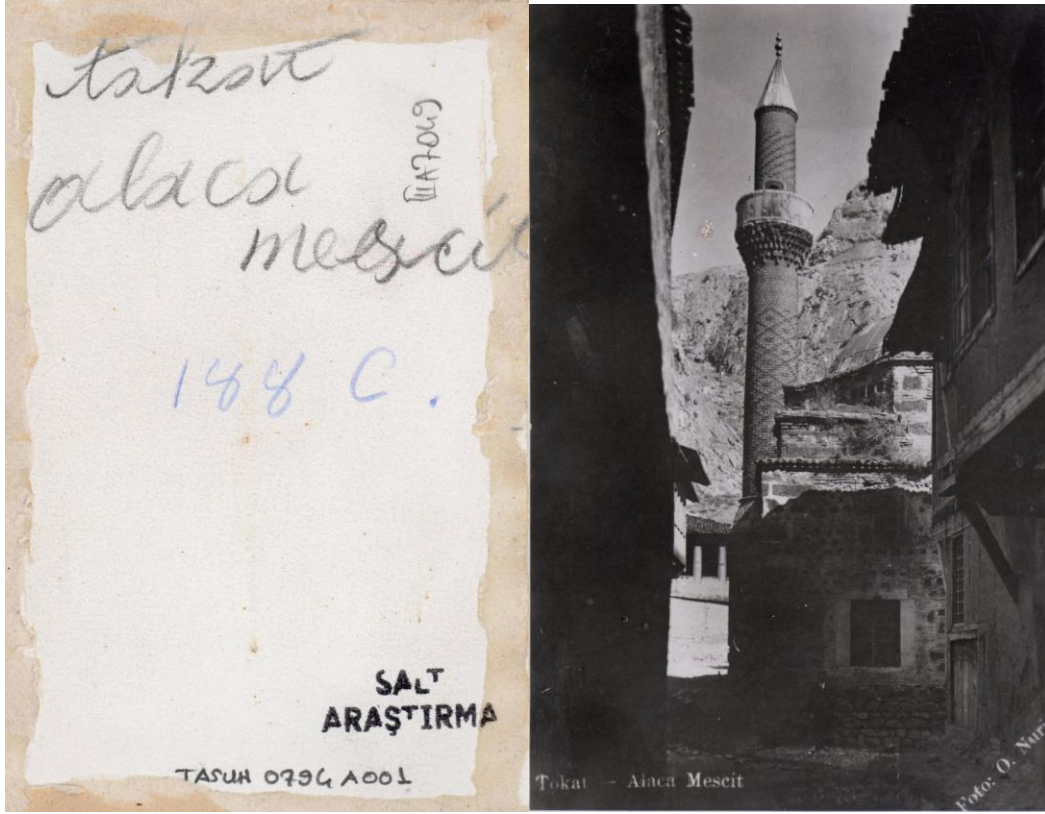 tokat
alaca
mescit
IIA7049
188 C.
SALT
ARAŞTIRMA
TASUH 0794 A001
Tokat — Alaca Mescit
Foto: O. Nuri